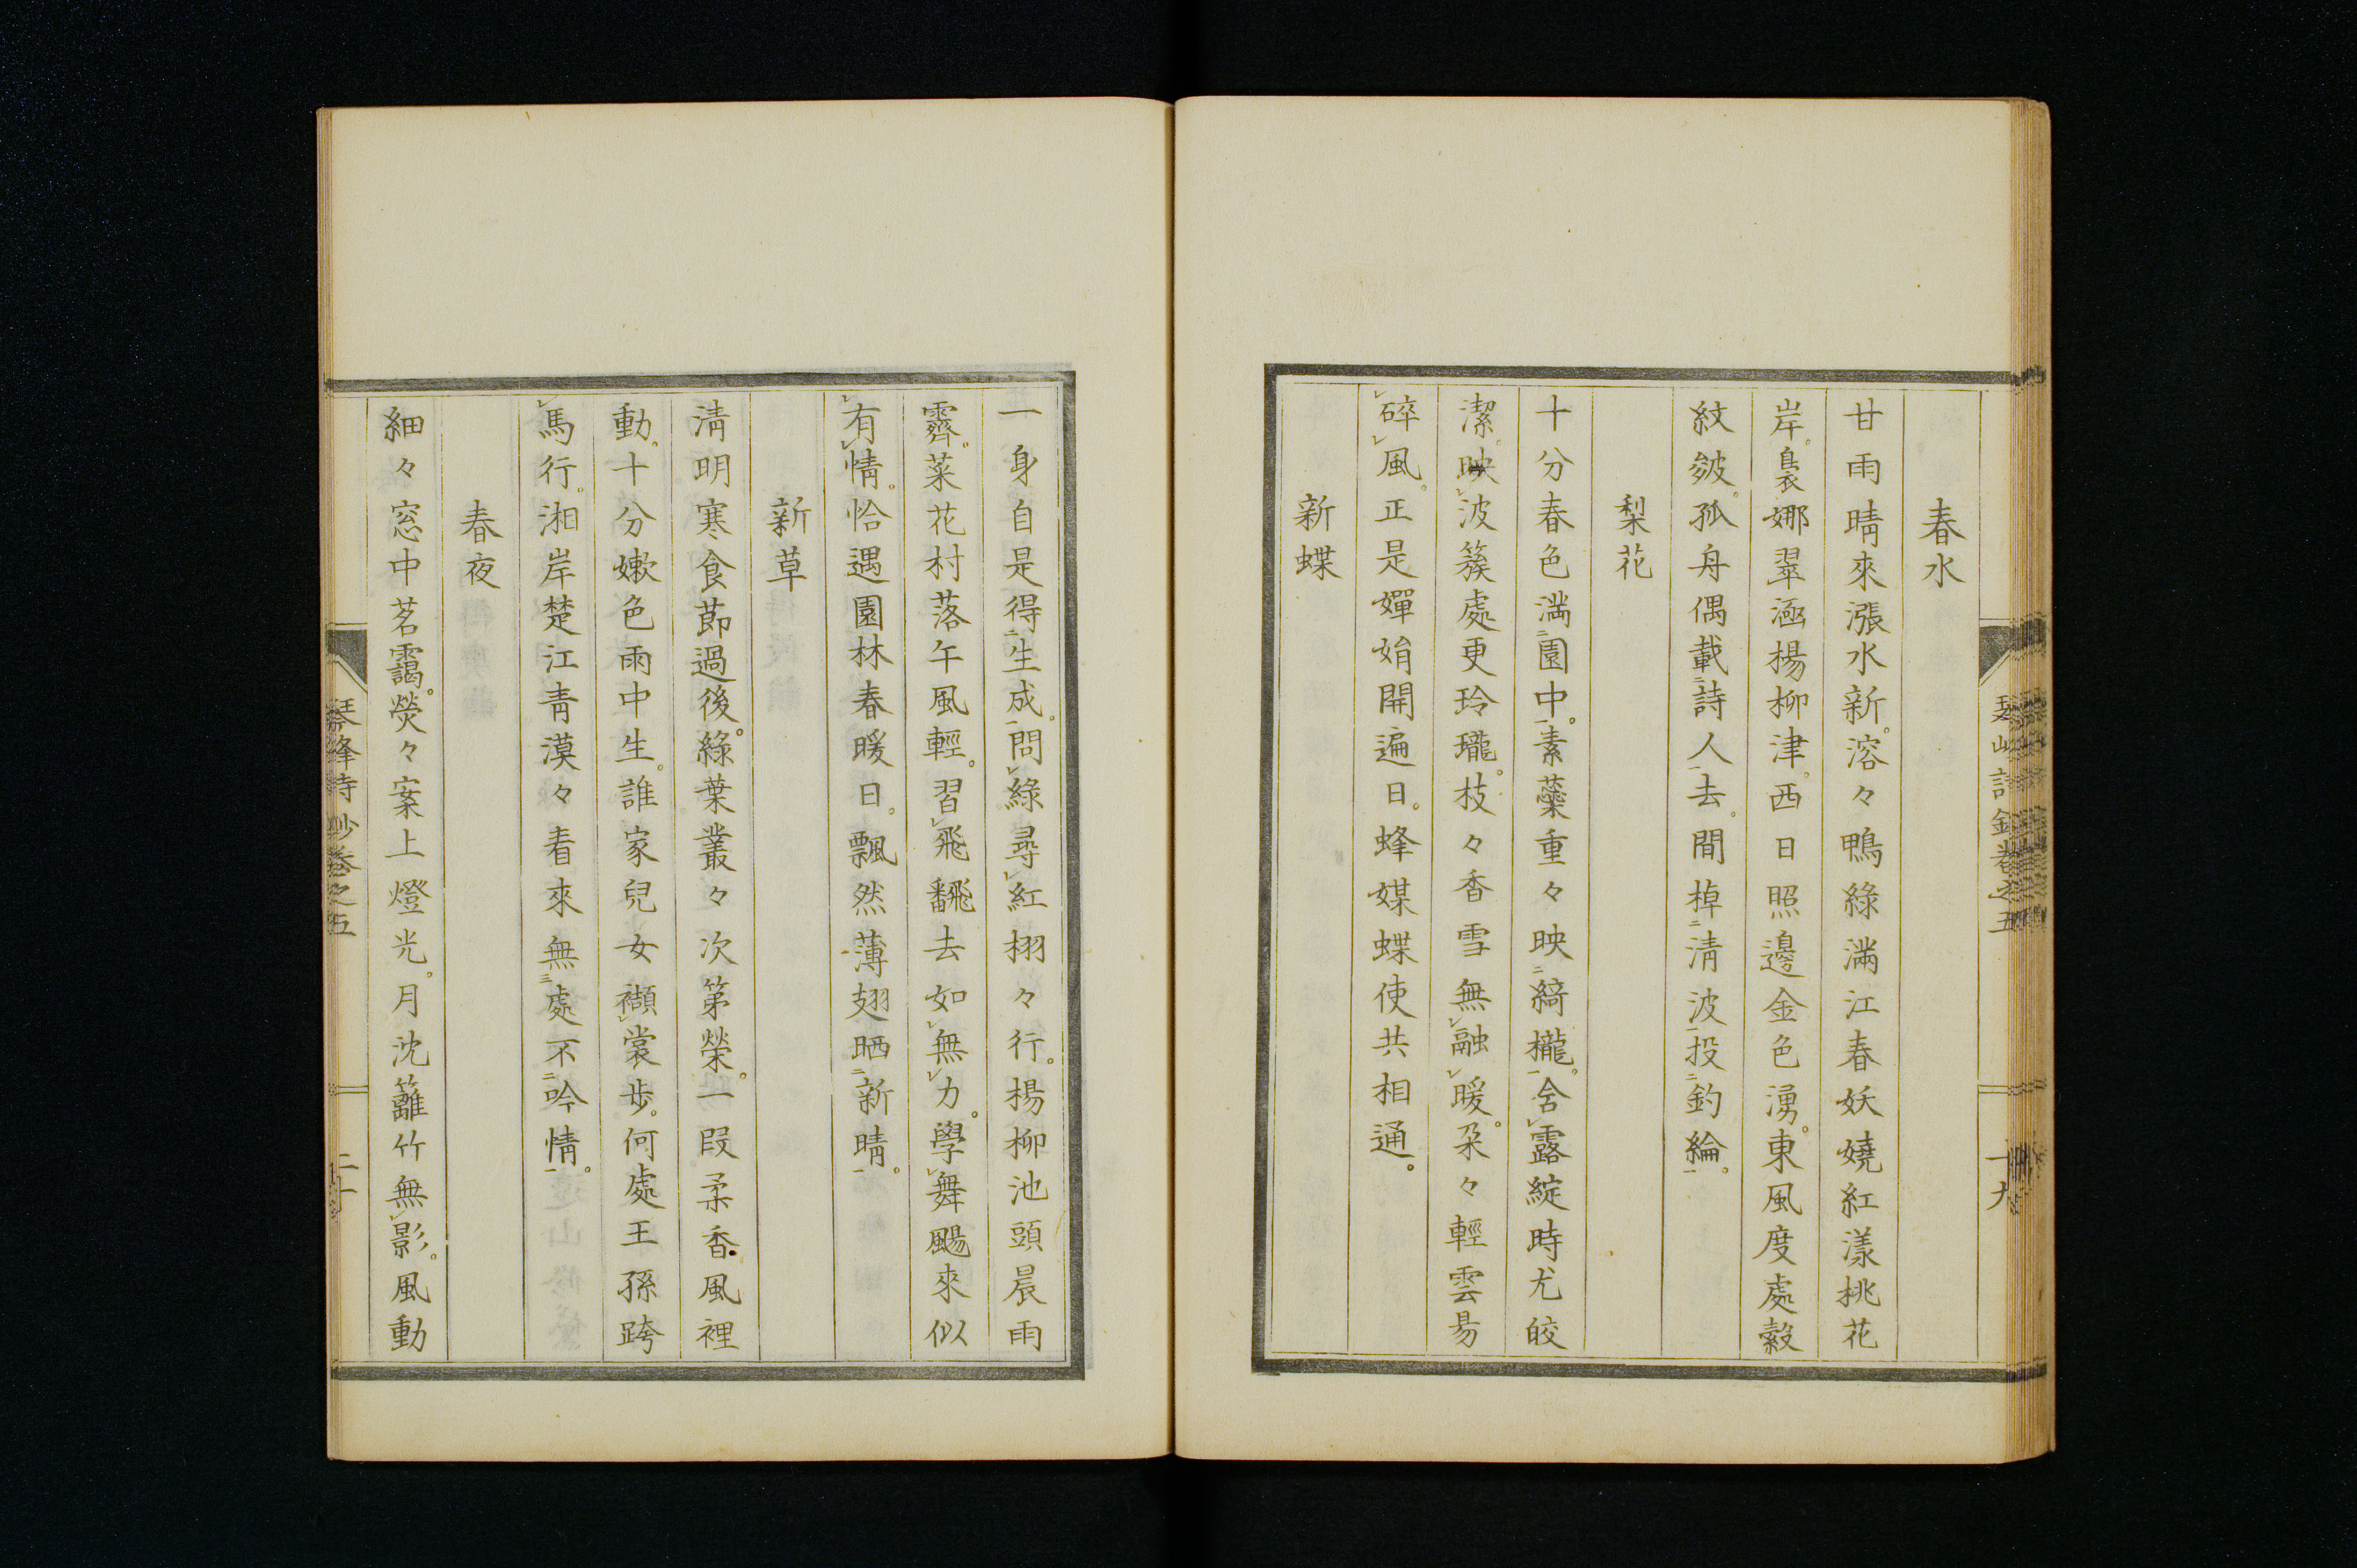 春水
甘雨晴來漲水新。溶々鴨綠滿江春妖嬈紅漾桃花
岸。裊娜翠涵楊柳津。西日照邊金色湧。東風度處縠
紋皴。孤舟偶載二詩人一去。間棹二淸波一投二釣綸一。
梨花
十分春色滿二園中一。素蘂重々映二綺櫳一。含レ露綻時尤皎
潔。映レ波簇處更玲瓏。枝々香雪無レ融レ暖。朶々輕雲易
レ碎レ風。正是嬋娟開遍日。蜂媒蝶使共相通。
新蝶
一身自是得二生成一。問レ綠尋レ紅栩々行。楊柳池頭晨雨
霽。菜花村落午風輕。習レ飛飜去如レ無レ力。學レ舞颺來似
レ有レ情。恰遇園林春暖日。飄然薄翅晒二新晴一。
新草
淸明寒食節過後。綠葉叢々次第榮。一段柔香風裡
動。十分嫩色雨中生。誰家兒女襭レ裳步。何處王孫跨
レ馬行。湘岸楚江靑漠々看來無三處不二吟情一。
春夜
細々窓中茗靄。熒々案上燈光。月沈籬竹無レ影。風動
琴峰詩鈔卷之五
二十